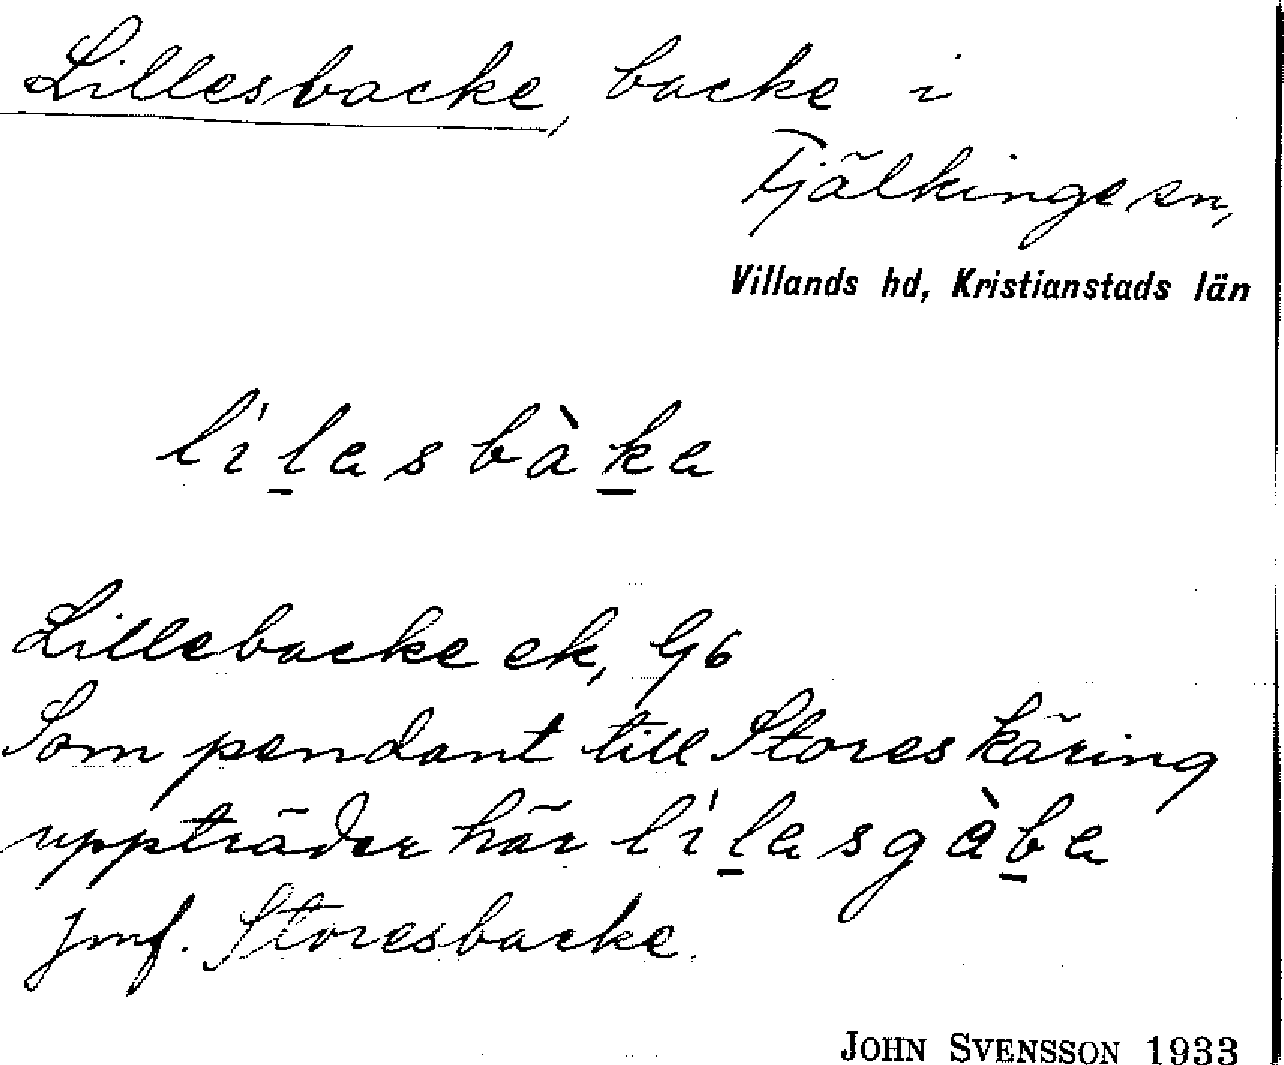 Lillesbacke, backe i
Fjälkinge sn,
Villands hd, Kristianstads län
lílasbàka
Lillebacke ek, G6
Som pendant till Stores käring
uppträder här lílasgàba
jmf. Storesbacke.
JOHN SVENSSON 1933